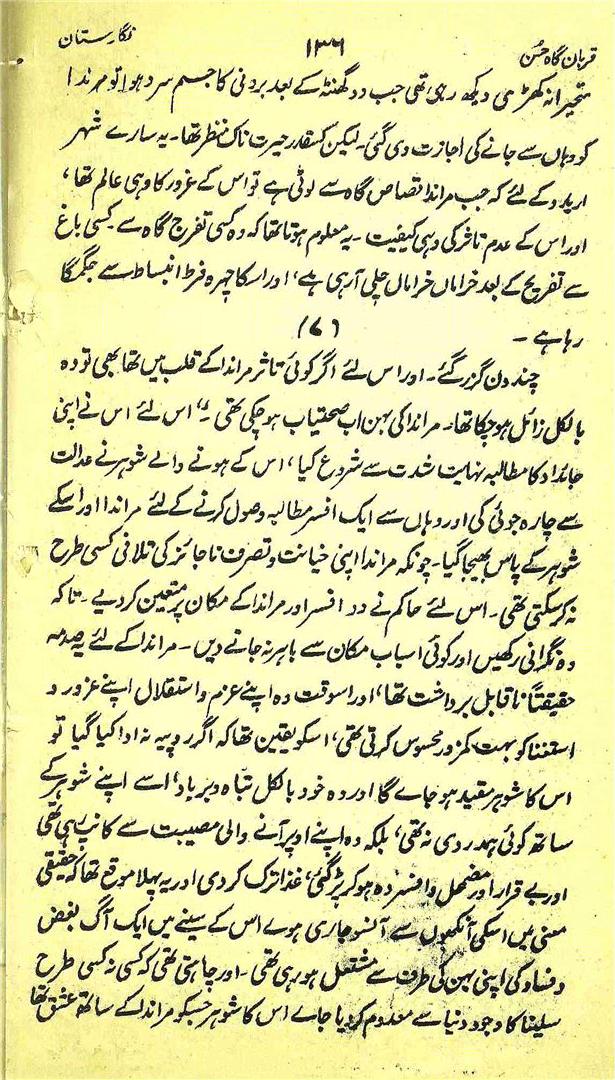 قربان گاہ حُسن ۱۳۶ نگارستان
متحیرانہ کھڑی دیکھ رہی تھی جب دو گھنٹہ کے بعد بردنی کا جسم سرد ہوا تو مرندا
کو وہاں سے جانے کی اجازت دی گئی۔ لیکن کسقدر حیرت ناک منظر تھا۔ یہ سارے شہر
اریدو کے لئے کہ جب مراندا قصاص گاہ سے لوٹی ہے تو اس کے غرور کا وہی عالم تھا،
اور اس کے عدم تاثر کی وہی کیفیت۔ یہ معلوم ہوتا تھا کہ وہ کسی تفرج گاہ سے کسی باغ
سے تفریح کے بعد خراماں خراماں چلی آرہی ہے، اور اسکا چہرہ فرط انبساط سے جگمگا
رہا ہے۔
(۷)
چند دن گزر گئے۔ اور اس لئے اگر کوئی تاثر مراندا کے قلب میں تھا بھی تو وہ
بالکل زائل ہوچکا تھا۔ مراندا کی بہن اب صحتیاب ہوچکی تھی۔ اس لئے اس نے اپنی
جائداد کا مطالبہ نہایت شدت سے شروع کیا، اس کے ہونے والے شوہر نے عدالت
سے چارہ جوئی کی اور وہاں سے ایک افسر مطالبہ وصول کرنے کے لئے مراندا اور اسکے
شوہر کے پاس بھیجا گیا۔ چونکہ مراندا اپنی خیانت و تصرف ناجائز کی تلافی کسی طرح
نہ کرسکتی تھی۔ اس لئے حاکم نے دو افسر اور مراندا کے مکان پر متعین کردیے۔ تاکہ
وہ نگرانی رکھیں اور کوئی اسباب مکان سے باہر نہ جانے دیں۔ مراندا کے لئے یہ صدمہ
حقیقتاً ناقابل برداشت تھا، اور اسوقت وہ اپنے عزم و استقلال اپنے غرور و
استغنا کو بہت کمزور محسوس کرتی تھی، اسکو یقین تھا کہ اگر روپیہ نہ ادا کیا گیا تو
اس کا شوہر مقید ہو جاے گا اور وہ خود بالکل تباہ و برباد، اسے اپنے شوہر کے
ساتھ کوئی ہمدردی نہ تھی، بلکہ وہ اپنے اوپر آنے والی مصیبت سے کانپ رہی تھی
اور بے قرار اور مضمحل و افسردہ ہوکر پڑگئی، غذا ترک کردی اور یہ پہلا موقع تھا کہ حقیقی
معنی میں اسکی آنکھوں سے آنسو جاری ہوے اس کے سینے میں ایک آگ بغض
و فساد کی اپنی بہن کی طرف سے مشتعل ہورہی تھی۔ اور چاہتی تھی کہ کسی نہ کسی طرح
سلینا کا وجود دنیا سے معدوم کردیا جاے اس کا شوہر جسکو مراندا کے ساتھ عشق تھا